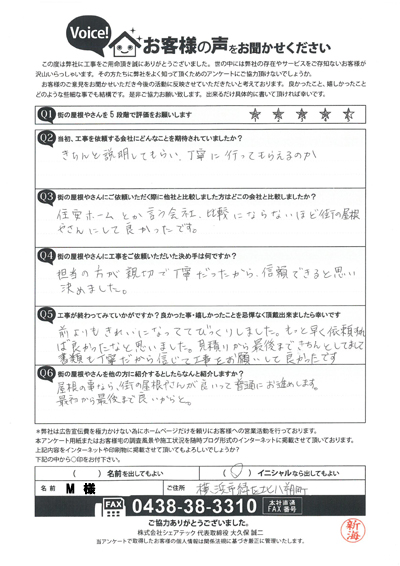 Voice!
お客様の声をお聞かせください
この度は弊社に工事をご用命頂き誠にありがとうございました。世の中には弊社の存在やサービスをご存知ないお客様が
沢山いらっしゃいます。その方たちに弊社をよく知って頂くためのアンケートにご協力頂けないでしょうか。
お客様のご意見をお聞かせいただき今後の活動に反映させていただきたいと考えております。良かったこと、嬉しかったこと
どのような些細な事でも結構です。是非ご協力お願い致します。出来るだけ具体的に書いて頂ければ幸いです。
Q1 街の屋根やさんを5段階で評価をお願いします
Q2 当初、工事を依頼する会社にどんなことを期待されていましたか?
きちんと説明してもらい、丁寧に行ってもらえるのか
Q3 街の屋根やさんにご依頼いただく際に他社と比較しました方はどこの会社と比較しましたか?
住宅ホームとか言う会社、比較にならないほど街の屋根
やさんにして良かったです。
Q4 街の屋根やさんに工事をご依頼いただいた決め手は何ですか?
担当の方が親切で丁寧だったから、信頼できると思い
決めました。
Q5 工事が終わってみていかがですか?良かった事・嬉しかったことを忌憚なく頂戴出来ましたら幸いです
前よりもきれいになっててびっくりしました。もっと早く依頼すれ
ば良かったなと思いました。見積りから最後まできちんとしてまして
書類も丁寧だから信じて工事をお願いして良かったです
Q6 街の屋根やさんを他の方に紹介するとしたらなんと紹介しますか?
屋根の事なら、街の屋根やさんが良いって普通にお進めします。
最初から最後まで良いからと。
*弊社は広告宣伝費を極力かけない為にホームページだけを頼りにお客様への営業活動を行っております。
本アンケート用紙またはお客様宅の調査風景や施工状況を随時ブログ形式のインターネットに掲載させて頂いております。
上記内容をインターネットや印刷物に掲載させて頂いてもよろしいでしょうか?
下記の中から〇印をお付下さい。
( ) 名前を出してもよい (〇) イニシャルなら出してもよい
名前 M 様 ご住所 横浜市緑区北八朔町
FAX 0438-38-3310 本社直通 FAX番号
ご協力ありがとうございました。
株式会社シェアテック 代表取締役 大久保 誠二
当アンケートで取得したお客様の個人情報は関係法規に基づき厳正に管理いたします。
新海